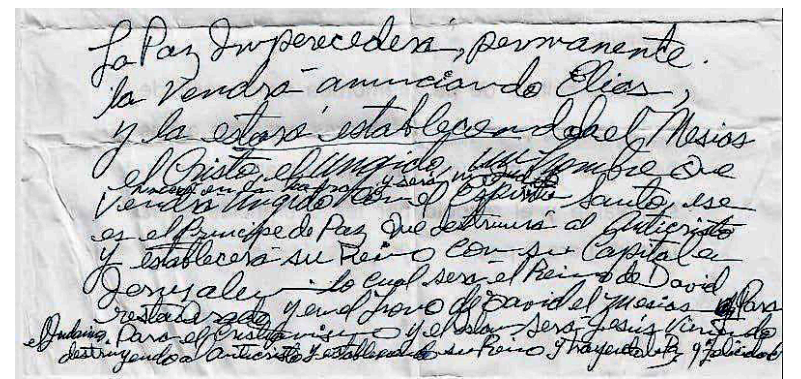 La Paz Imperecedera, permanente.
la vendrá anunciando Elías,
y la estará estableciendo el Mesías
el Cristo, el Ungido, un hombre que
nacerá en la tierra y será
Vendrá Ungido con el Espíritu Santo, ese
es el Príncipe de Paz que destruirá al anticristo
y establecerá su Reino con su Capital en
Jerusalem lo cual será el Reino de David
restaurado y en el trono de David el Mesías Para
el Judaísmo. Para el Cristianismo y el Islam será Jesús Viniendo
destruyendo a anticristo y estableciendo su Reino y trayendo la Paz y felicidad